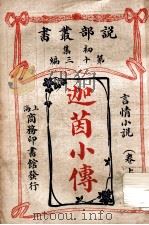 説部叢書
初集
第十三編
言情小説
(卷上)
迦茵小傳
上海
商務印書館發行